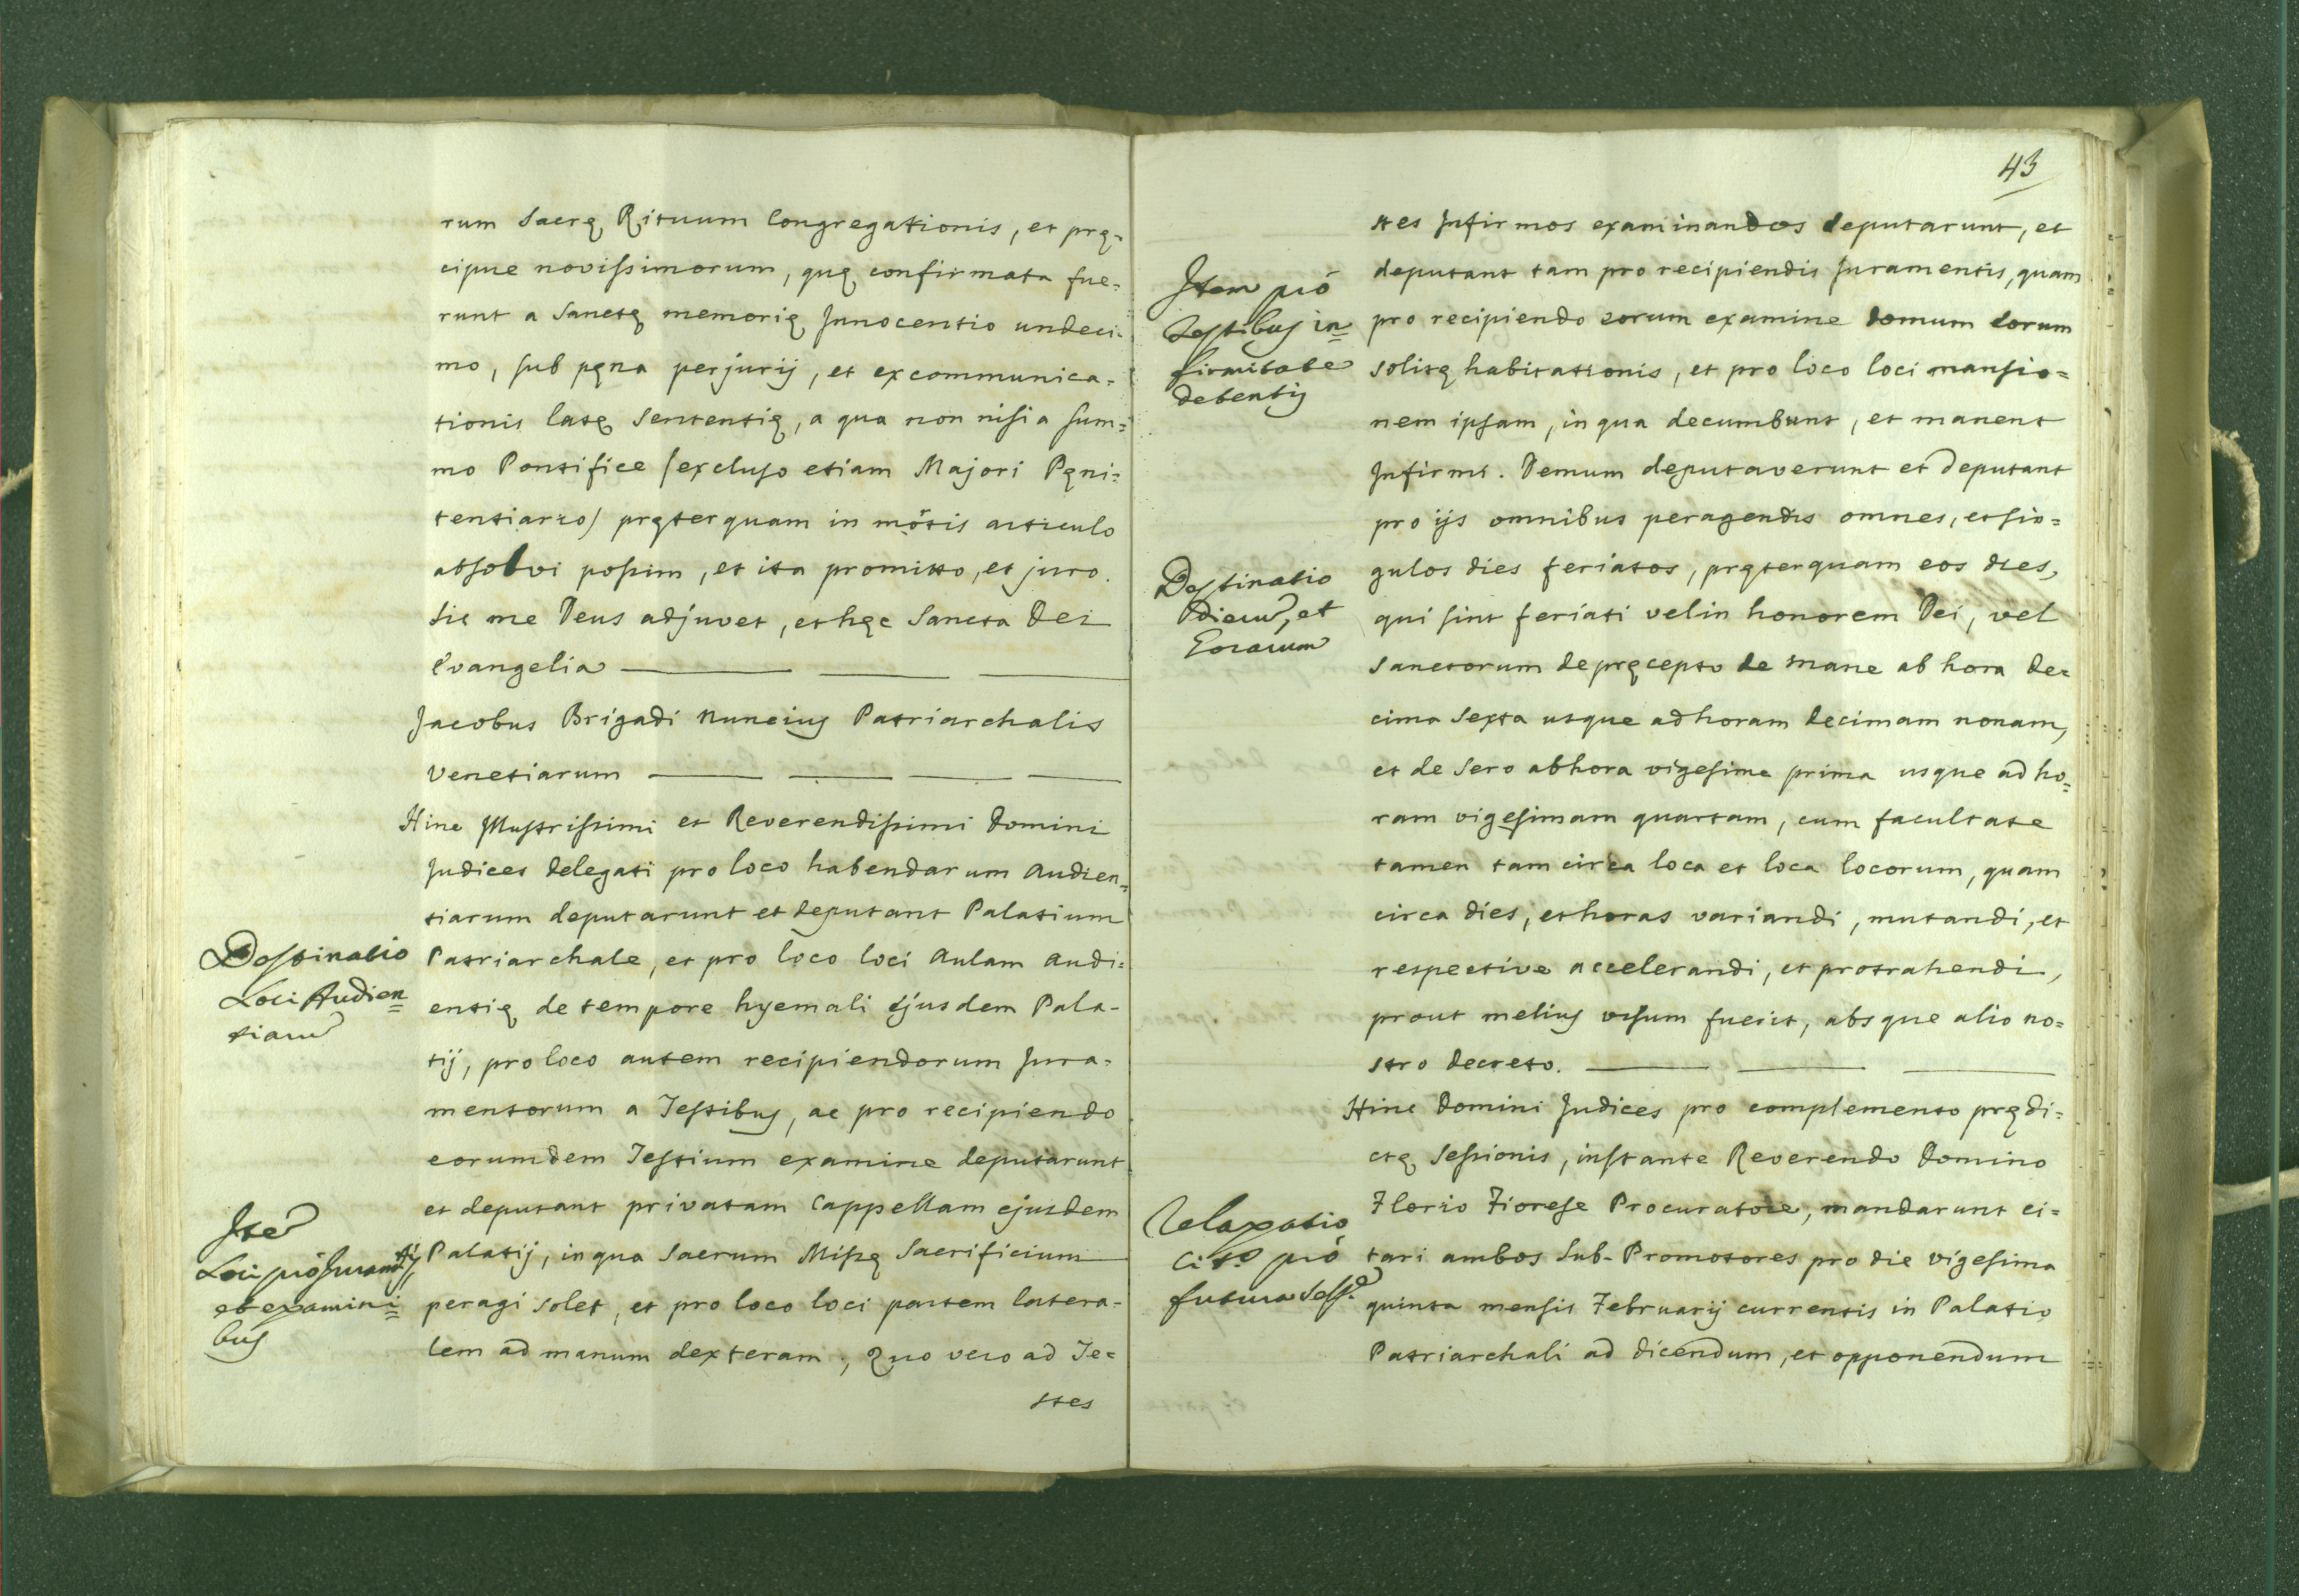 rum Sacrę Rituum Congregationis, et prę-
cipue novissimorum, quę confirmata fue-
runt a Sanctę memorię Innocentio undeci-
mo, sub pęna perjurij, et excommunica-
tionis latę Sententię, a qua non nisi a sum=
mo Pontifice /excluso etiam Majori Pęni=
tentiario/ pręterquam in mõtis articulo
absolvi possim, et ita promitto, et juro.
Sic me Deus adjuvet, et hęc Sancta Dei
Evangelia
Jacobus Brigadi Nuncius Patriarchalis
Venetiarum
Hinc Illustrissimi et Reverendissimi Domini
Judices Delegati pro loco habendarum Audien=
tiarum deputarunt et deputant Palatium
Destinatio
Loci Audien=
tiarum
Patriarchale, et pro loco loci Aulam Audi=
entię de tempore hyemali ejusdem Pala-
tij, pro loco autem recipiendorum Jura-
mentorum a Testibus, ac pro recipiendo
eorumdem Testium examine deputarunt
et deputant privatam Cappellam ejusdem
Item
Loci pró Juramtis,
et examini=
bus
Palatij, in qua Sacrum Missę Sacrificium
peragi solet, et pro loco loci partem latera-
lem ad manum dexteram; Quo vero ad Te=
stes
43
stes Infirmos examinandos deputarunt, et
deputant tam pro recipiendis Juramentis, quam
Item pró
Testibus in=
firmitate
detentis
pro recipiendo eorum examine domum eorum
solitę habitationis, et pro loco loci mansio=
nem ipsam, in qua decumbunt, et manent
Infirmi. Demum deputaverunt et deputant
pro ijs omnibus peragendis omnes, et sin=
gulos dies feriatos, pręterquam eos dies,
Destinatio
Dierum, et
Horarum
qui sint feriati vel in honorem Dei, vel
Sanctorum de pręcepto de mane ab hora de=
cima Sexta usque ad horam decimam nonam,
et de Sero ab hora vigesima prima usque ad ho=
ram vigesimam quartam, cum facultate
tamen tam circa loca et loca locorum, quam
circa dies, et horas variandi, mutandi, et
respective accelerandi, et protrahendi,
prout melius visum fuerit, absque alio no=
stro decreto.
Hinc Domini Judices pro complemento prędi=
ctę Sessionis, instante Reverendo Domino
Relaxatio
Citt.o pró
futura Sess.e
Florio Fiorese Procuratore, mandarunt ci=
tari ambos Sub-Promotores pro die vigesima
quinta mensis Februarij currentis in Palatio
Patriarchali ad dicendum, et opponendum